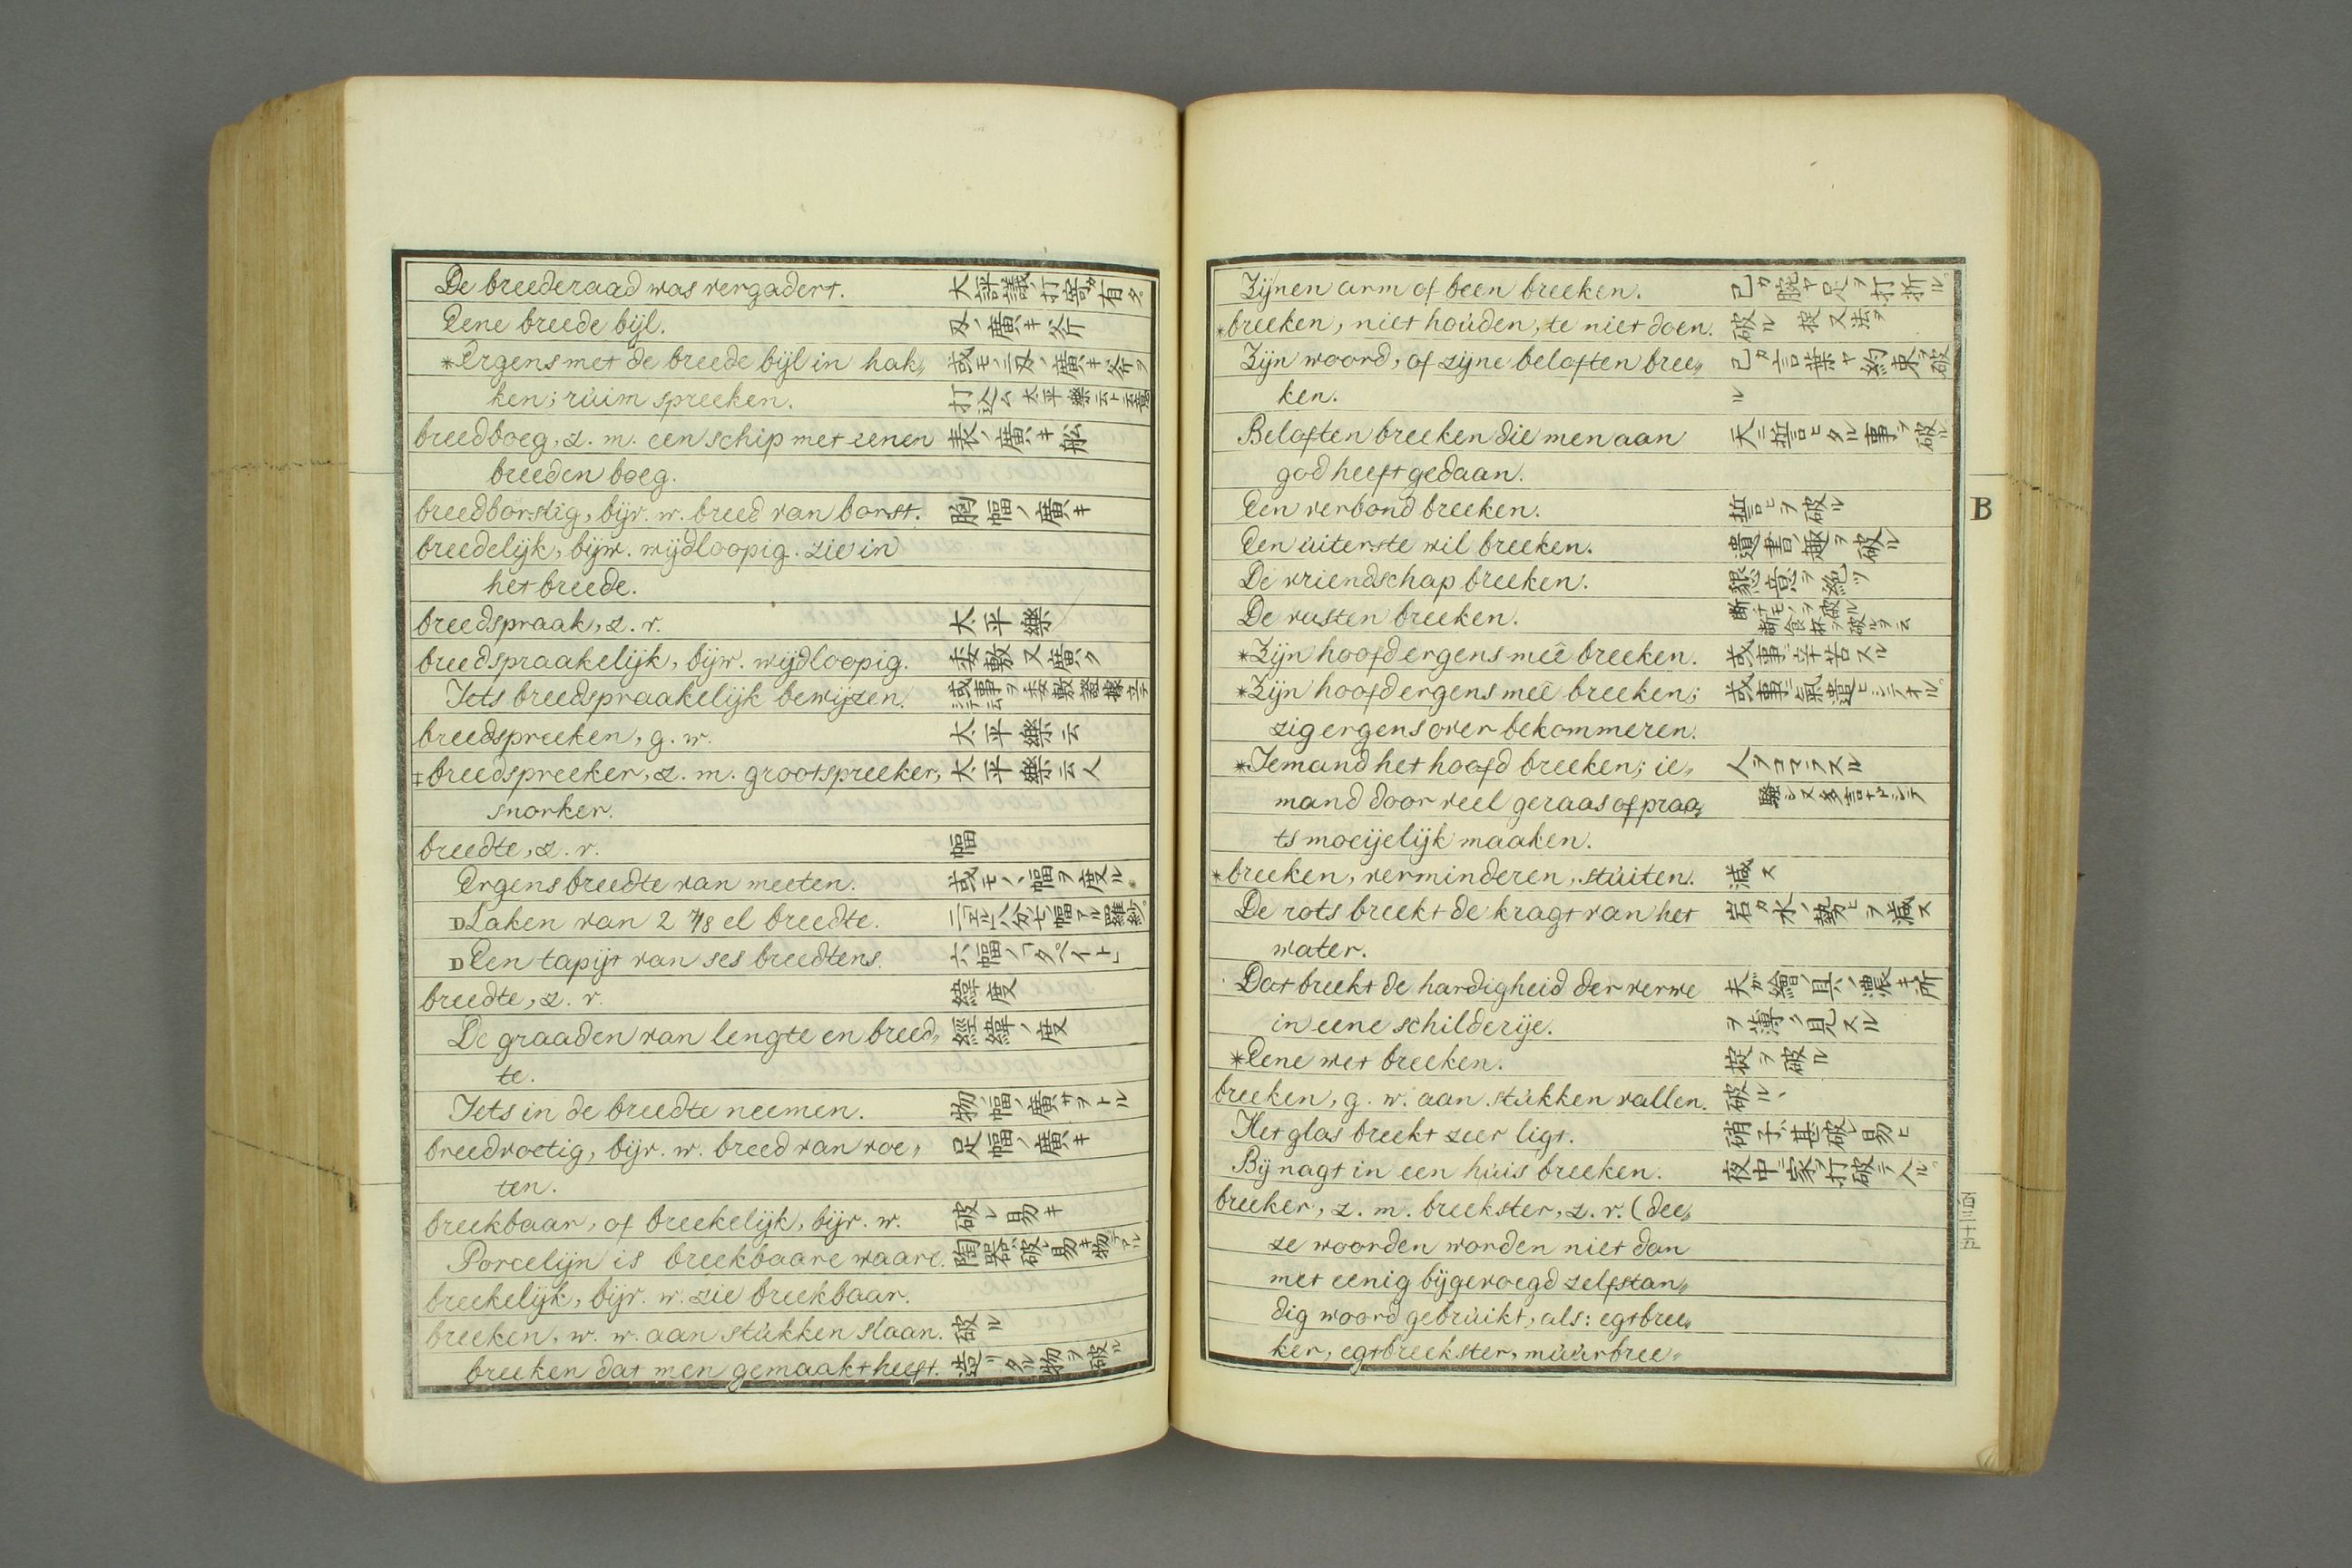 De breederaad was vergadert. 大評議ノ打寄ガ有タ
Eene breede bijl. 刄ノ廣キ斧
*Ergens met de breede bijl in hak„ 或モノニ刄ノ廣キ斧ヲ
ken; rùim spreeken. 打込ム 太平樂云ト云意
breedboeg, z. m. een schip met eenen 表ノ廣キ舩
breeden boeg.
breedborstig, bijv. w. breed van borst. 胸幅ノ廣キ
breedelijk, bijw. wijdloopig. zie in
het breede.
breedspraak, z. v.太平樂
breedspraakelijk, bijw. wijdloopig. 委敷 又廣ク
Iets breedspraakelijk bewijzen. 或事ヲ委敷證據立テシテ云
breedspreeken, g. w. 太平樂云
‡breedspreeker, z. m. grootspreeker, 太平樂云人
snorker.
breedte, z. v. 幅
Ergens breedte van meeten. 或モノヽ幅ヲ度ル
D Laken van 2 7/8 el breedte.
D Een tapijt van ses breedtens. 六幅ノ「タペイト」
breedte, z. v. 緯度
De graaden van lengte en breed„ 經緯ノ度
te.
Iets in de breedte neemen. 物ノ幅ノ廣サヲトル
breedvoetig, bijv. w. breed van voe„ 足幅ノ廣キ
ten.
breekbaar, of breekelijk, bijv. w. 破レ易キ
Porcelijn is breekbaare waare. 陶器ハ破レ易キ物デアル
breekelijk, bijv. w. zie breekbaar.
breeken, w. w. aan stùkken slaan. 破ル
breeken dat men gemaakt heeft. 造リタル物ヲ破ル
Zijnen arm of been breeken. 己ガ腕ヤ足ヲ打折ル
*breeken, niet hoùden, te niet doen. 破ル 掟又法ヲ
Zijn woord, of zijne beloften bree„ 己ガ言葉ヤ約束ヲ破
ken. ル
Beloften breeken die men aan 天ニ誓ヒタル事ヲ破ル
god heeft gedaan.
Een verbond breeken. 誓ヒヲ破ル
Een ùiterste wil breeken. 遺書ノ趣ヲ破ル
De vriendschap breeken. 懇意ヲ絶ツ
De vasten breeken.
*Zijn hoofd ergens meê breeken. 或事ニ辛苦スル
*Zijn hoofd ergens meê breeken; 或事ニ氣遣ヒシテオル
zig ergens over bekommeren.
*Iemand het hoofd breeken; ie„ 人ヲコマラスル
mand door veel geraas of praa„ 騒シ又多言ナドシテ
ts moeijelijk maaken.
*breeken, verminderen, stùiten. 減ス
De rots breekt de kragt van het 岩ガ水ノ勢ヒヲ減ス
water.
Dat breekt de hardigheid der verwe 夫ガ繪ノ具ノ濃キ所
in eene schilderije. ヲ薄ク見スル
*Eene wet breeken. 掟ヲ破ル
breeken, g. w. aan stùkken vallen. 破ルヽ
Het glas breekt zeer ligt. 硝子ハ甚破レ易ヒ
Bij nagt in een hùis breeken. 夜中ニ家ヲ打破テ入ル
breeker, z. m. breekster, z. v. (dee„
ze woorden worden niet dan
met eenig bijgevoegd zelfstan„
dig woord gebrùikt, als: egtbree„
ker, egtbreekster, mùùrbree„
B
百三十五